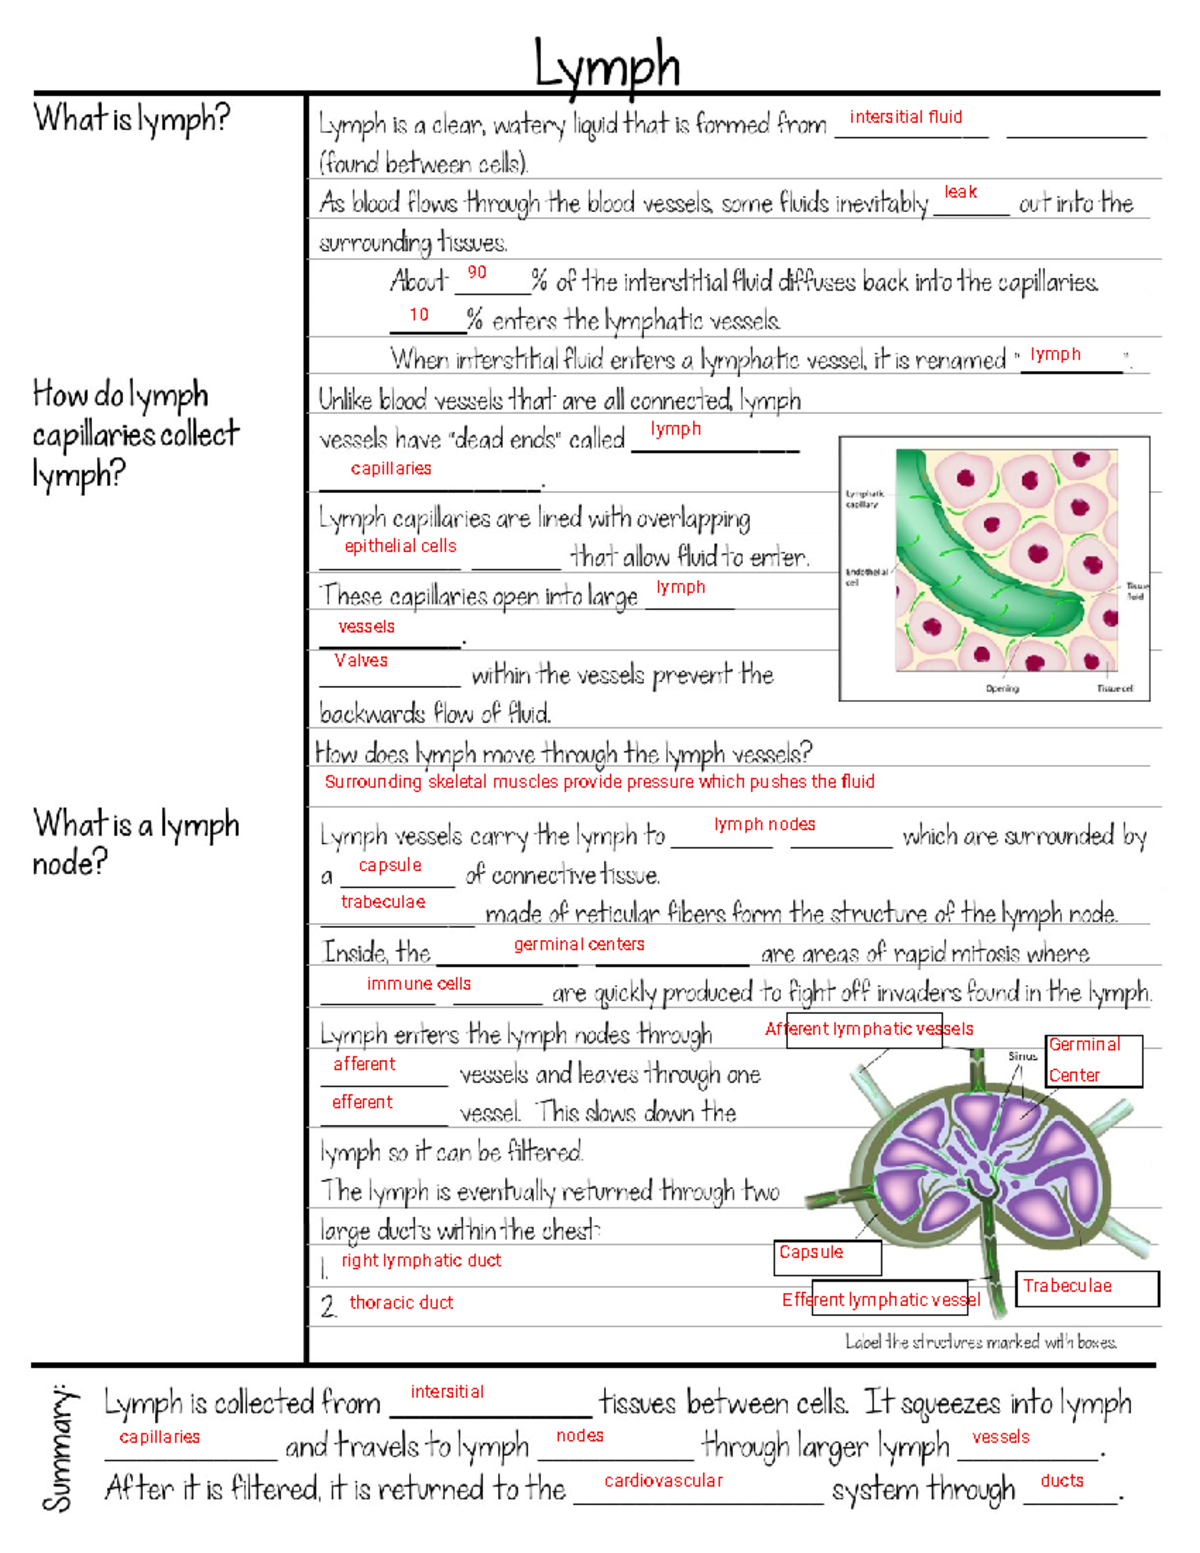 Lymph
What is lymph?
Lymph is a clear, watery liquid that is formed from intersitial fluid
(found between cells).
As blood flows through the blood vessels, some fluids inevitably leak out into the
surrounding tissues.
About 90 % of the interstitial fluid diffuses back into the capillaries.
10 % enters the lymphatic vessels.
When interstitial fluid enters a lymphatic vessel, it is renamed "lymph".
How do lymph
capillaries collect
lymph?
Unlike blood vessels that are all connected, lymph
vessels have "dead ends" called lymph
capillaries.
Lymph capillaries are lined with overlapping
epithelial cells that allow fluid to enter.
These capillaries open into large lymph
vessels.
Valves within the vessels prevent the
backwards flow of fluid.
Lymphatic
capillary
Endothelial
cell
Tissue
fluid
Opening
Tissue cell
How does lymph move through the lymph vessels?
Surrounding skeletal muscles provide pressure which pushes the fluid
What is a lymph
node?
Lymph vessels carry the lymph to lymph nodes which are surrounded by
a capsule of connective tissue.
trabeculae made of reticular fibers form the structure of the lymph node.
Inside, the germinal centers are areas of rapid mitosis where
immune cells are quickly produced to fight off invaders found in the lymph.
Lymph enters the lymph nodes through
afferent vessels and leaves through one
efferent vessel. This slows down the
lymph so it can be filtered.
The lymph is eventually returned through two
large ducts within the chest:
1. right lymphatic duct
2. thoracic duct
Afferent lymphatic vessels
Sinus
Germinal
Center
Capsule
Efferent lymphatic vessel
Trabeculae
Label the structures marked with boxes.
Summary:
Lymph is collected from intersitial tissues between cells. It squeezes into lymph
capillaries and travels to lymph nodes through larger lymph vessels.
After it is filtered, it is returned to the cardiovascular system through ducts.